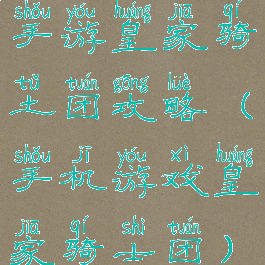 shǒu yóu huáng jiā qí
手游皇家骑
tǔ tuán gōng lüè
土团攻略（
shǒu jī yóu xì huáng
手机游戏皇
jiā qí shì tuán
家骑士团）